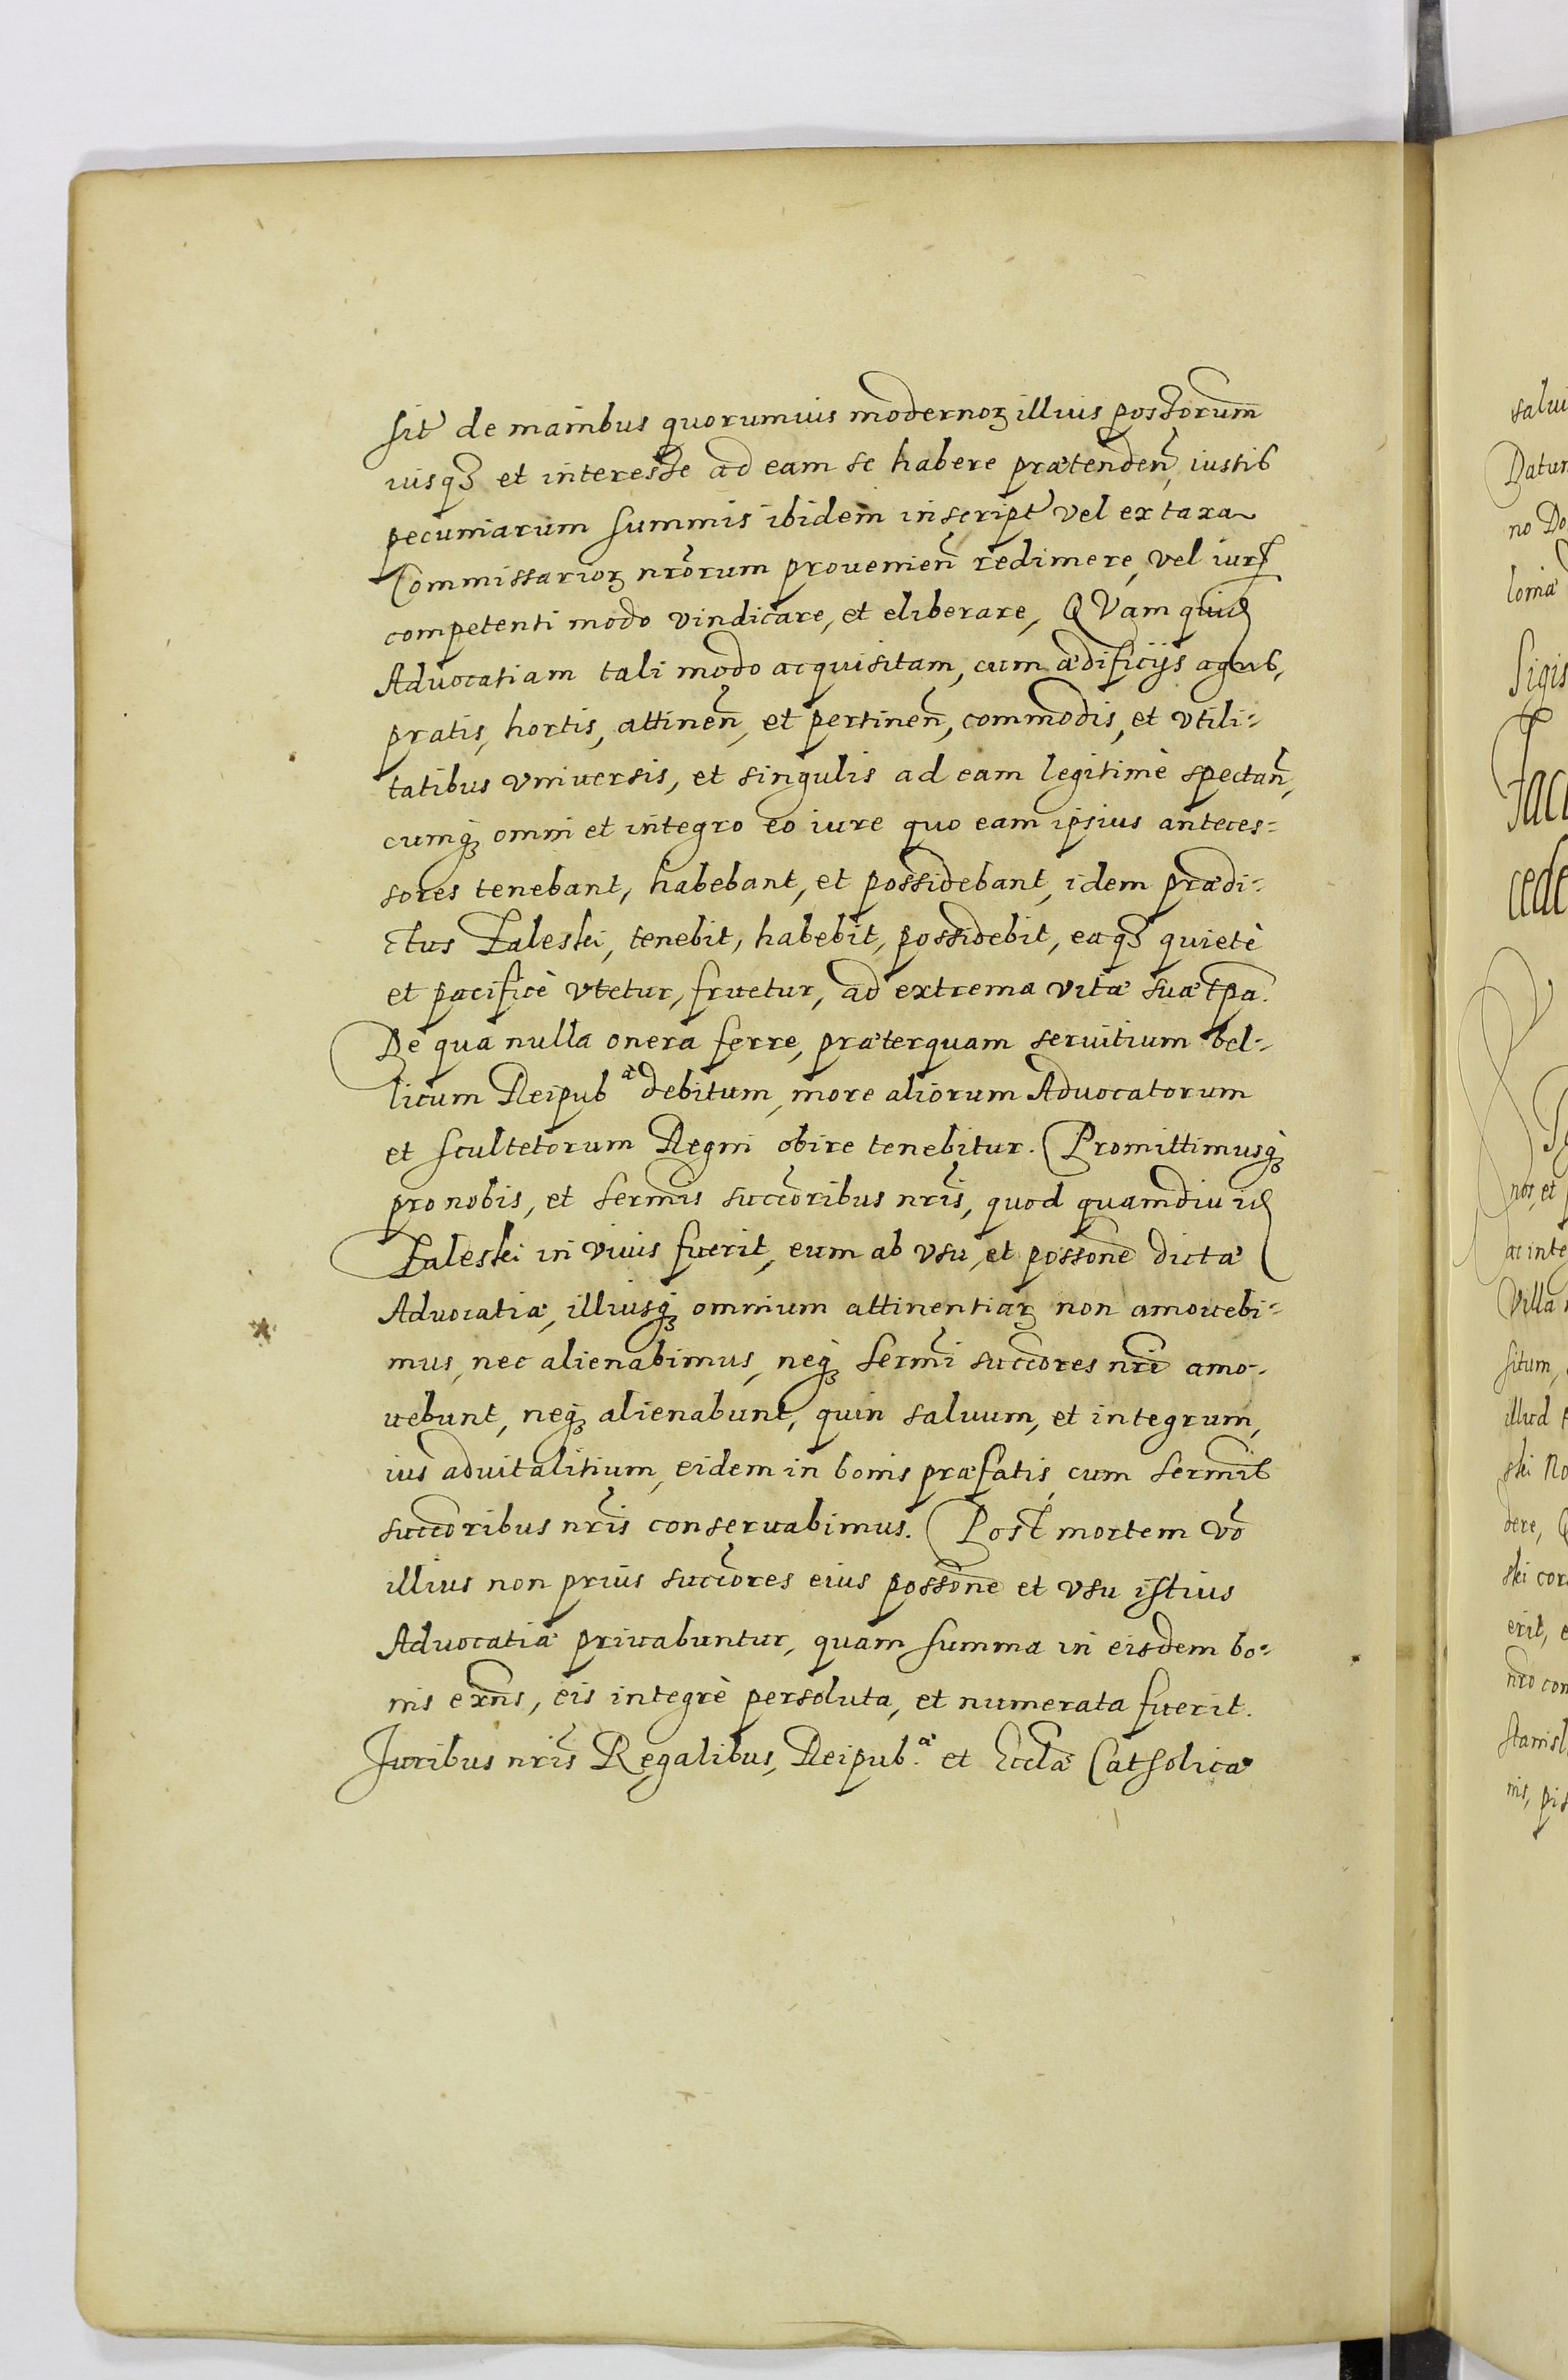 sit de manibus quorumuis modernoꝝ illius possorum
iusqꝫ et interesse ad eam se habere prætendeñ, iustis
pecuniarum summis ibidem inscript vel ex taxa
Commissarioꝝ nr̃orum prouenieñ redimere, vel iurẽ
competenti modo vindicare, et eliberare, QVam quid
Aduocatiam tali modo acquisitam, cum ædificijs agris,
pratis, hortis, attineñ, et pertineñ, commodis, et vtili=
tatibus vniuersis, et singulis ad eam legitimè spectañ,
cumqꝫ omni et integro eo iure quo eam ipsius anteces=
sores tenebant, habebant, et possidebant, idem prædi=
ctus Zaleski, tenebit, habebit, possidebit, eaqꝫ quietè
et pacificè vtetur, fruetur, ad extrema vitæ suæ tp̃a.
De qua nulla onera ferre, præterquam seruitium bel=
licum Reipub.æ debitum, more aliorum Aduocatorum
et scultetorum Regni obire tenebitur. Promittimusqꝫ
pro nobis, et serm̃is succõribus nr̃is, quod quamdiu id
Zaleski in viuis fuerit, eum ab vsu, et possone dictæ
Aduocatiæ, illiusqꝫ omnium attinentiaꝝ non amouebi=
mus, nec alienabimus, neqꝫ serm̃i succõres nr̃i amo=
uebunt, neqꝫ alienabunt, quin saluum, et integrum,
ius aduitalitium, eidem in bonis præfatis, cum serm̃is
succõribus nr̃is conseruabimus. Post mortem vo
illius non prius succõres eius possone et vsu istius
Aduocatiæ priuabuntur, quam summa in eisdem bo=
nis exñs, eis integrè persoluta, et numerata fuerit.
Juribus nr̃is Regalibus, Reipub.æ et Ecclæ Catholicæ
salui
Datum
no Do
loniæ
Sigis
Jac
cede
nos, et
ac inte
Villa
situm,
illud
ski No
dere,
ski cor
erit, e
nr̃o con
Stanisl
nis, pis